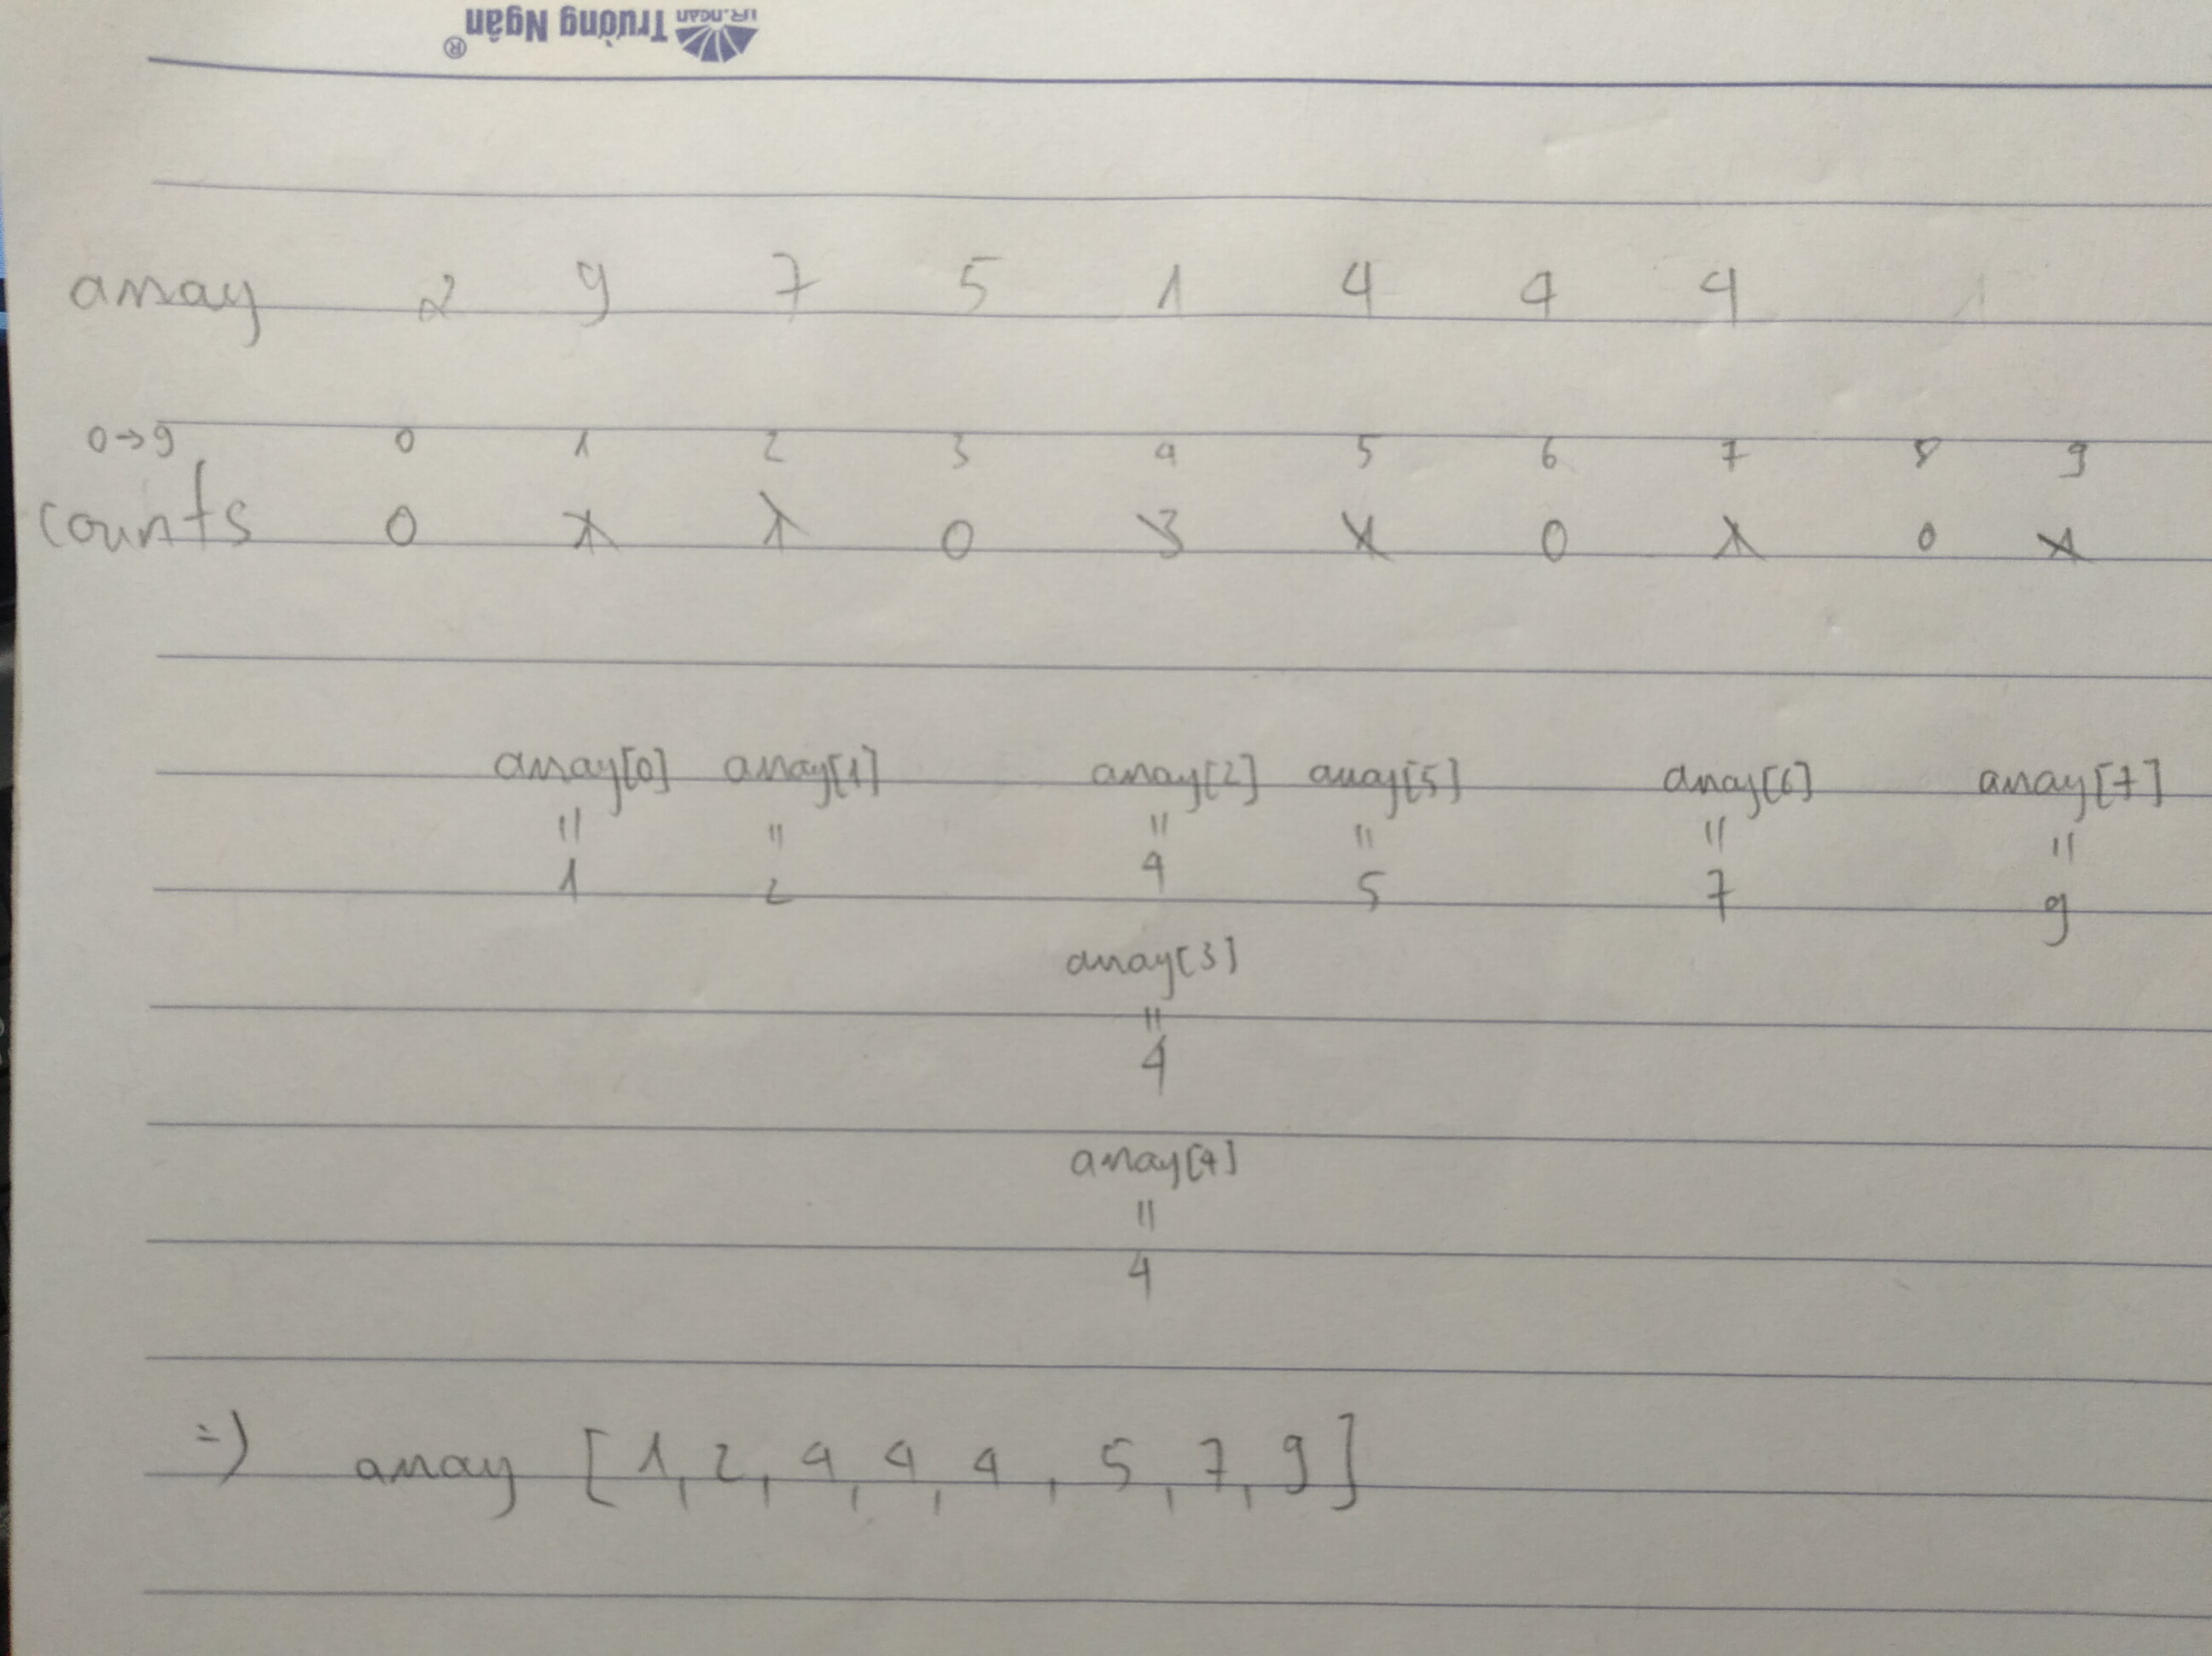 TR.NGAN Trường Ngân®
array 2 9 7 5 1 4 4 4 1
0→9 0 1 2 3 4 5 6 7 8 9
counts 0 1 1 0 3 1 0 1 0 1
array[0] array[1] array[2] array[5] array[6] array[7]
= = = = = =
1 2 4 5 7 9
array[3]
=
4
array[4]
=
4
=) array [1, 2, 4, 4, 4, 5, 7, 9]